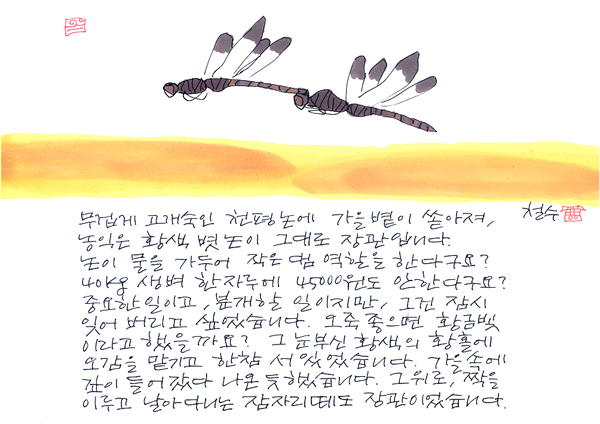 철수
무겁게 고개숙인 천평논에 가을볕이 쏟아져,
농익은 황색 볏논이 그대로 장판입니다.
논이 물을 가두어 작은 댐 역할을 한다구요?
40kg 생벼 한자루에 45000원도 안한다구요?
중요한일이고, 분개할 일이지만, 그건 잠시
잊어 버리고 싶었습니다. 오죽좋으면 황금빛
이라고 했을까요? 그 눈부신 황색의 황홀에
오감을 맡기고 한참 서 있었습니다. 가을속에
깊이 들어갔다 나온 듯했습니다. 그위로, 짝을
이루고 날아다니는 잠자리떼도 장판이었습니다.